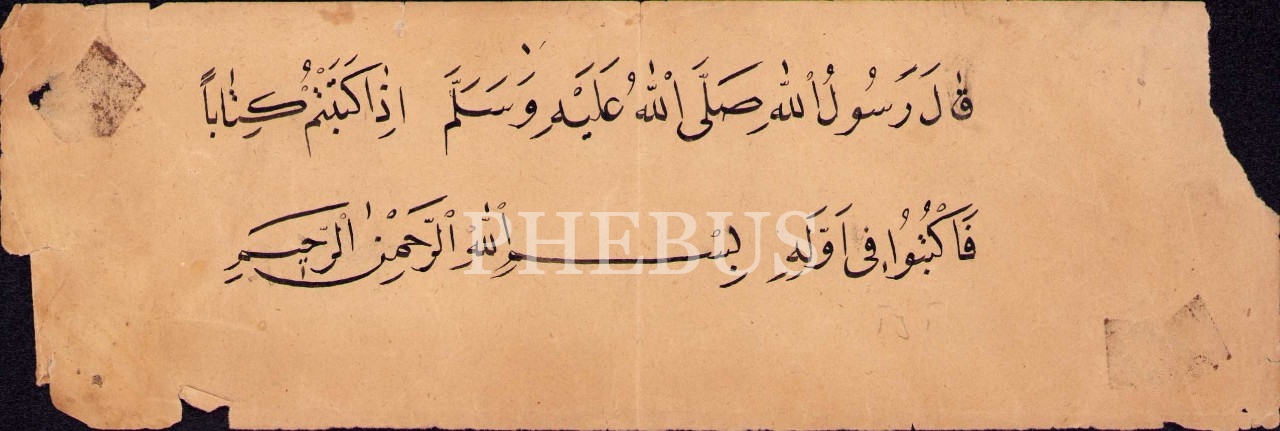 قَالَ رَسُولُ اللهِ صَلَّى اللهُ عَلَيْهِ وَسَلَّمَ اِذَا كَتَبْتُمْ كِتَاباً
فَاكْتُبُوا فِى اَوَّلِهِ بِسْمِ اللهِ الرَّحْمٰنِ الرَّحِيمِ
PHEBUS